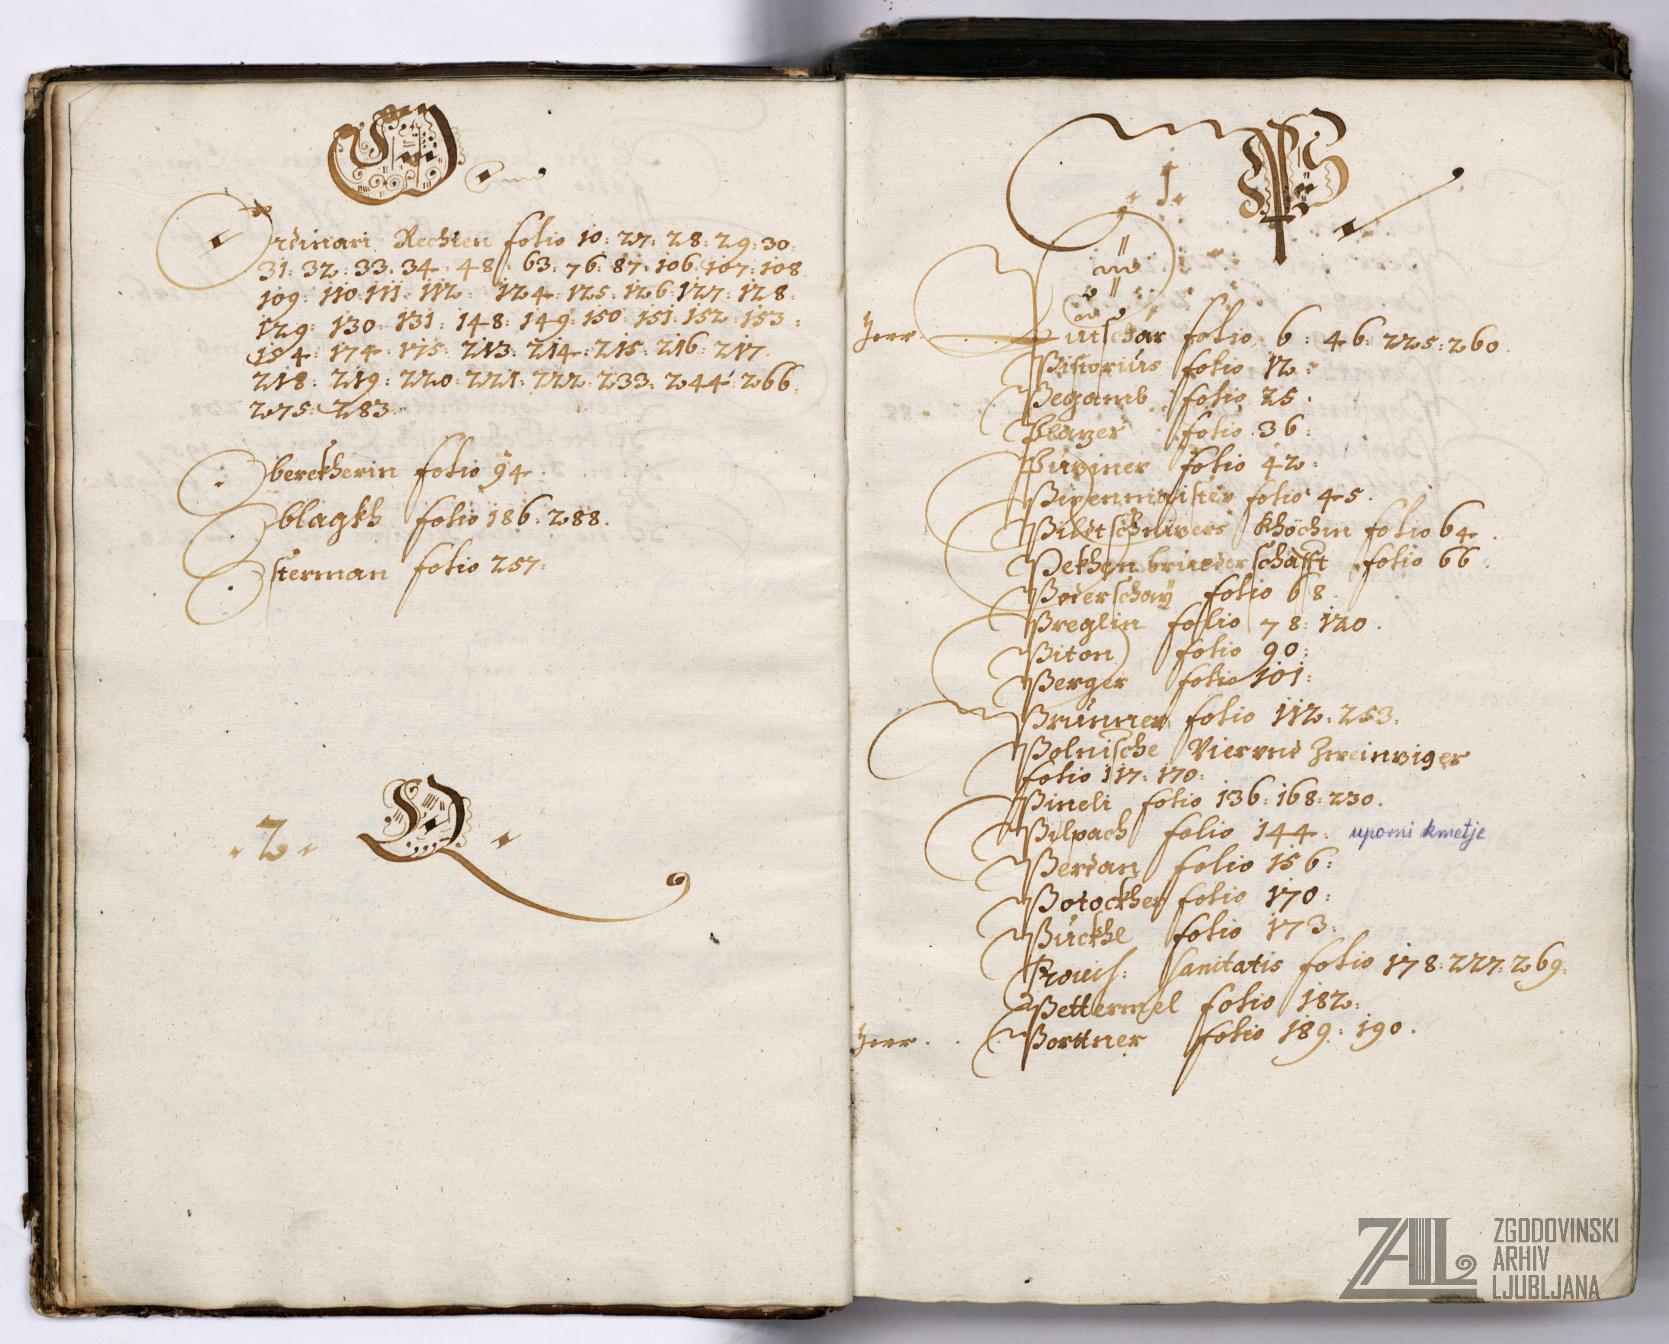 O
Ordinari Rechten folio 10: 27: 28: 29: 30
31: 32: 33: 34: 48: 63: 76: 87: 106: 107: 108
109: 110: 111: 112: 124: 125: 126: 127: 128:
129: 130: 131: 148: 149: 150: 151: 152: 153:
154: 174: 175: 213: 214: 215: 216: 217
218: 219: 220: 221: 222: 233: 244: 266
275: 283
Oberekherin folio 94.
Oblagkh folio 186: 288.
Osterman folio 257:
.2. Q
.1. P
und
B
Herr Putschar folio 6: 46: 225: 260
Pistorius folio 12:
Pegamb folio 25.
Plazer folio 36:
folio 42:
Pixenmaister folio 45.
Khöchin folio 64.
Pekhen bruederschafft folio 66
Poderschay folio 68
Preglin folio 78: 120.
Piton folio 90:
Berger folio 101:
Brunner folio 112: 253.
Polnische Viervnd Zweinziger
folio 117: 170:
Pineli folio 136: 168: 230.
Pilpach folio 144. uporni kmetje
Perdan folio 156:
Potockher folio 170:
Puckhl folio 173:
Prouis: sanitatis folio 178: 227: 269:
Pettermel folio 182:
Herr Porttner folio 189: 190.
ZAL ZGODOVINSKI
ARHIV
LJUBLJANA